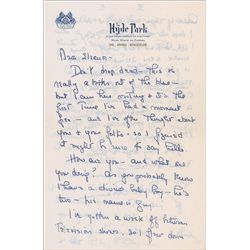 Hyde Park
Dear
Don't drop dead - This is
really a bolt out of the blue -
but I am here resting & it's the
first time I've had a moment
free - and I've often thought about
you & your folks - so I figured
it might be nice to say hello.
How are you - and what are
you doing? As you probably know
I have a divine baby boy - he's
two - his name is
I've gotten a week off between
television shows, so I flew down